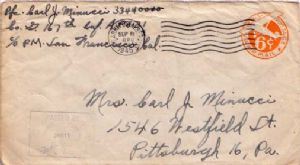 Pfc. Carl J. Minucci 33440000
Co. D. 167th Inf. A.P.O. 41
c/o P.M. San Francisco, Cal.
SEP 8
1945
6¢
Mrs. Carl J Minucci
1546 Westfield St.
Pittsburgh 16, Pa.